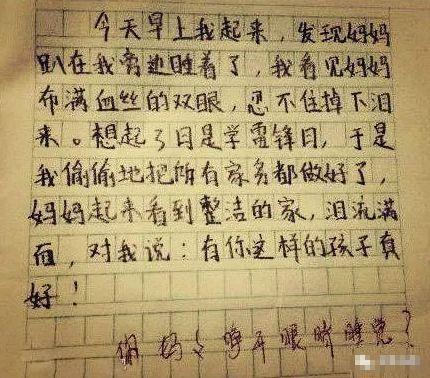 今天早上我起来，发现妈妈
趴在我旁边睡着了，我看见妈妈
布满血丝的双眼，忍不住掉下泪
来。想起了日是学雷锋日，于是
我偷偷地把所有家务都做好了，
妈妈起来看到整洁的家，泪流满
面，对我说：有你这样的孩子真
好！
你妈々睁开眼睛睡觉？